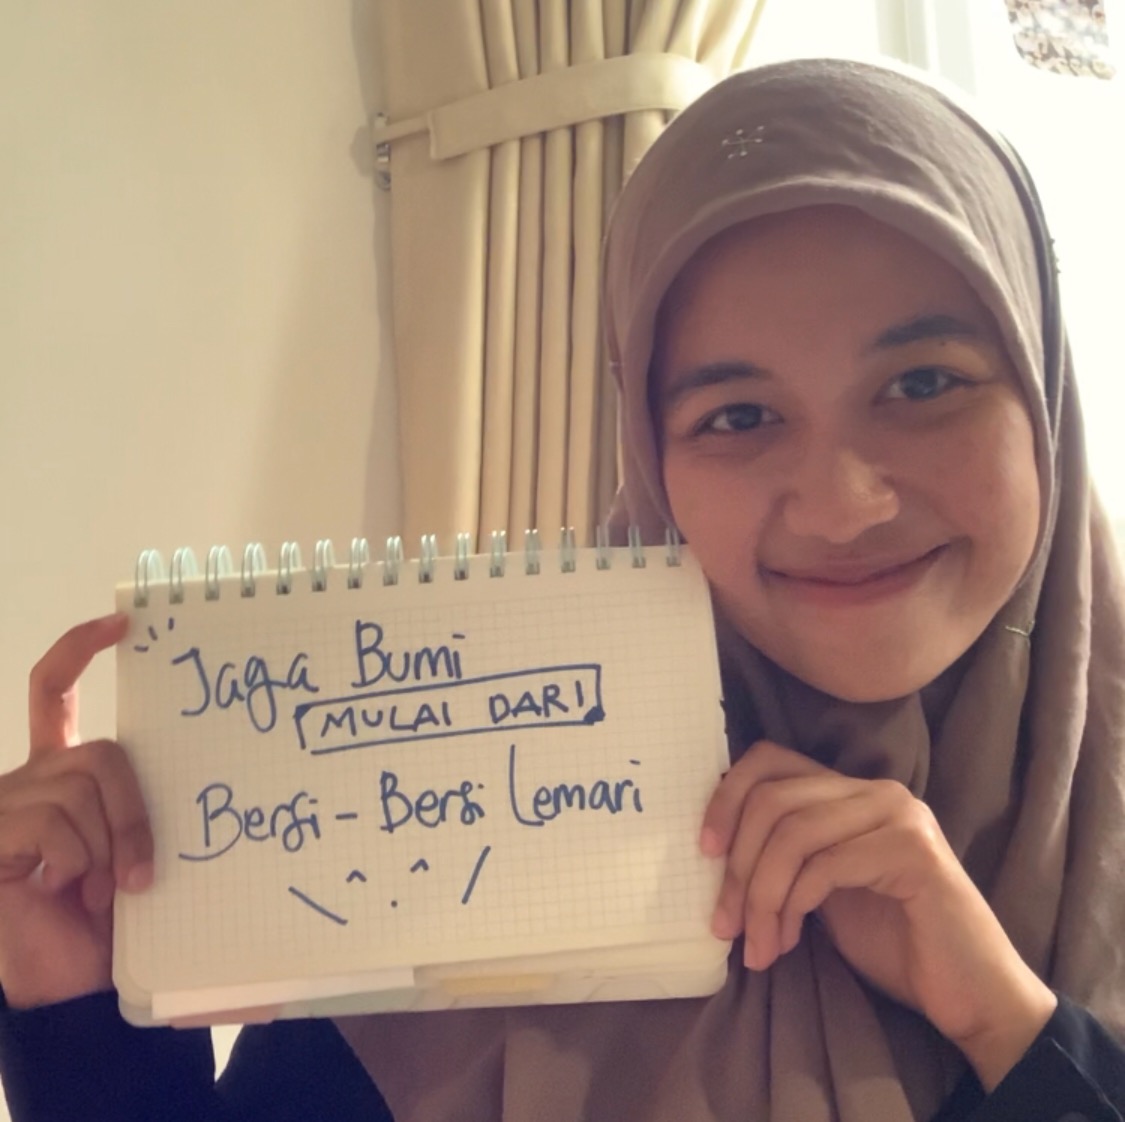 Jaga Bumi
MULAI DARI
Bersi-Bersi Lemari
\^.^/